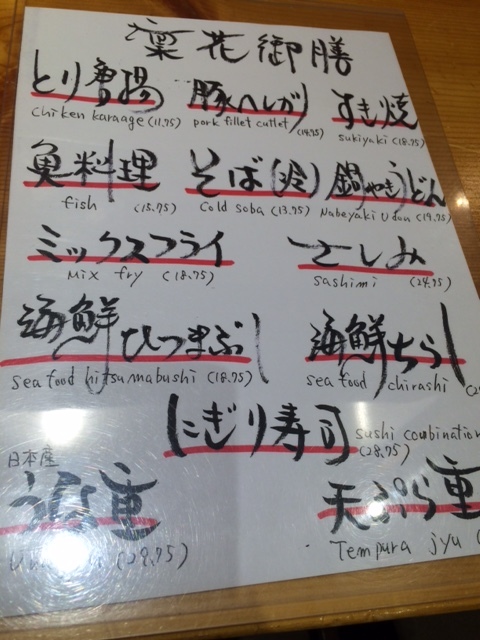 凛花御膳
とり唐揚 豚ヘレカツ すき焼
chiken karaage (11.75) pork fillet cutlet (14.75) sukiyaki (18.75)
魚料理 そば(冷) 鍋やきうどん
fish (15.75) Cold soba (13.75) Nabeyaki Udon (19.75)
ミックスフライ さしみ
Mix fry (18.75) sashimi (24.75)
海鮮ひつまぶし 海鮮ちらし
sea food hitsumabushi (18.75) sea food chirashi
にぎり寿司 sushi coubination
(28.75)
日本産
うな重 天ぷら重
(29.75) Tempura jyu